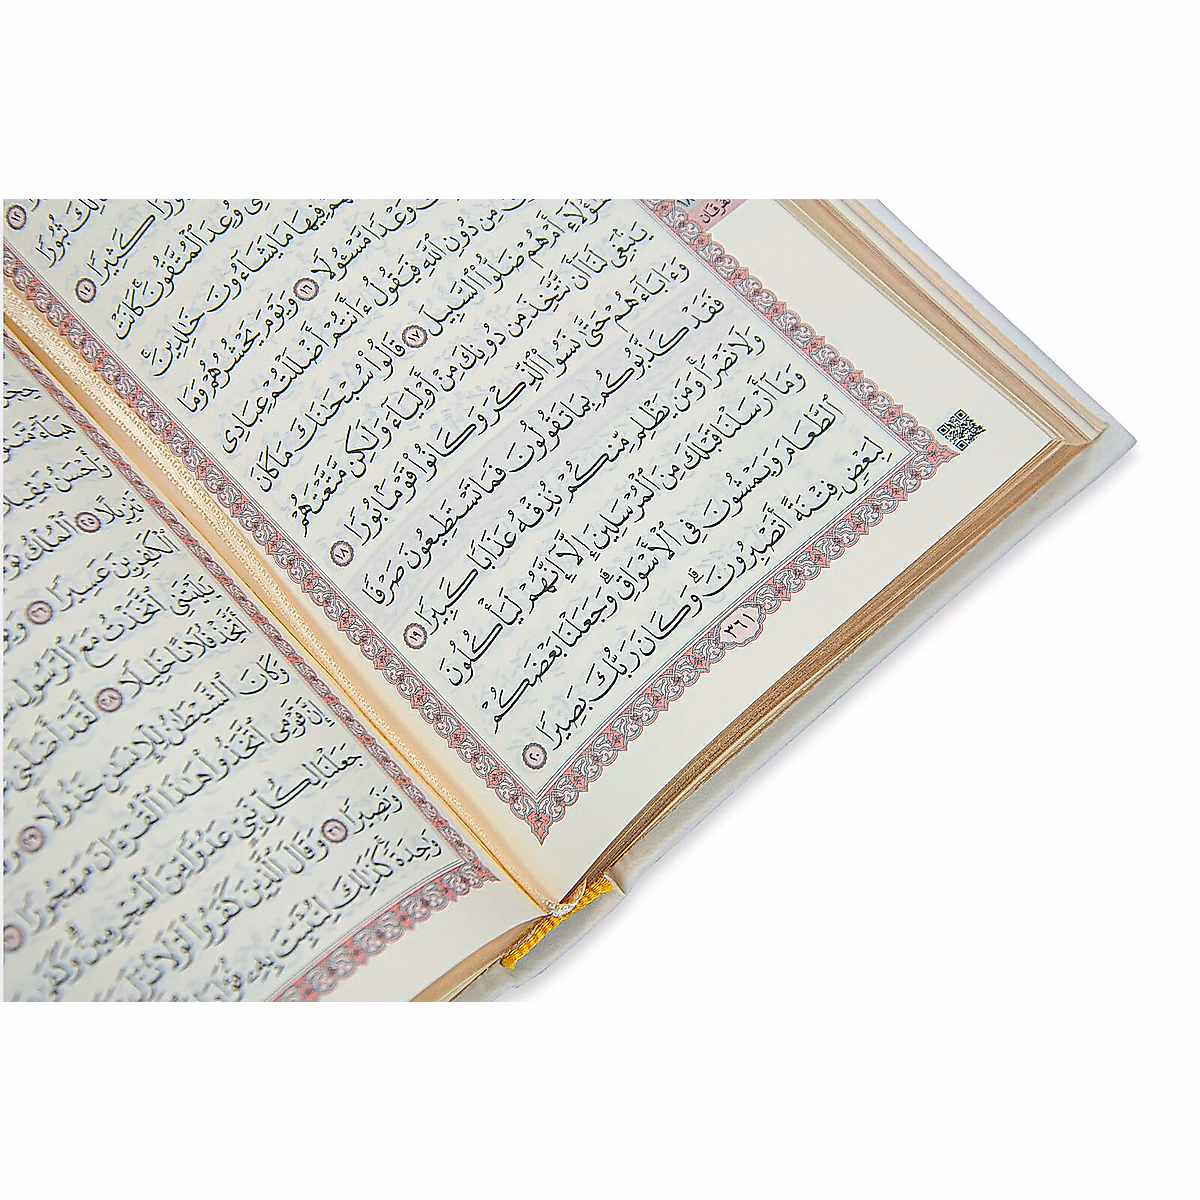 ثُبُورًا
كَثِيرًا ١٤
وُعِدَ ٱلْمُتَّقُونَۚ كَانَتْ
لَهُمْ فِيهَا مَا يَشَآءُونَ خَٰلِدِينَۚ
وَعْدًا مَّسْـُٔولًا ١٦ وَيَوْمَ يَحْشُرُهُمْ وَمَا
مِن دُونِ ٱللَّهِ فَيَقُولُ ءَأَنتُمْ أَضْلَلْتُمْ عِبَادِى
هَٰٓؤُلَآءِ أَمْ هُمْ ضَلُّوا۟ ٱلسَّبِيلَ ١٧ قَالُوا۟ سُبْحَٰنَكَ مَا كَانَ
يَنۢبَغِى لَنَآ أَن نَّتَّخِذَ مِن دُونِكَ مِنْ أَوْلِيَآءَ وَلَٰكِن مَّتَّعْتَهُمْ
وَءَابَآءَهُمْ حَتَّىٰ نَسُوا۟ ٱلذِّكْرَ وَكَانُوا۟ قَوْمًۢا بُورًا ١٨
فَقَدْ كَذَّبُوكُم بِمَا تَقُولُونَ فَمَا تَسْتَطِيعُونَ صَرْفًا
وَلَا نَصْرًاۚ وَمَن يَظْلِم مِّنكُمْ نُذِقْهُ عَذَابًا كَبِيرًا ١٩
وَمَآ أَرْسَلْنَا قَبْلَكَ مِنَ ٱلْمُرْسَلِينَ إِلَّآ إِنَّهُمْ لَيَأْكُلُونَ
ٱلطَّعَامَ وَيَمْشُونَ فِى ٱلْأَسْوَاقِۗ وَجَعَلْنَا بَعْضَكُمْ
لِبَعْضٍ فِتْنَةً أَتَصْبِرُونَۗ وَكَانَ رَبُّكَ بَصِيرًا ٢٠
٣٦١
وَأَحْسَنُ مَقِيلًا
تَنزِيلًا ٢٥ ٱلْمُلْكُ
ٱلْكَٰفِرِينَ عَسِيرًا ٢٦
يَٰلَيْتَنِى ٱتَّخَذْتُ مَعَ ٱلرَّسُولِ
أَتَّخِذْ فُلَانًا خَلِيلًا ٢٨ لَّقَدْ أَضَلَّنِى
وَكَانَ ٱلشَّيْطَٰنُ لِلْإِنسَٰنِ خَذُولًا ٢٩
إِنَّ قَوْمِى ٱتَّخَذُوا۟ هَٰذَا ٱلْقُرْءَانَ مَهْجُورًا ٣٠
جَعَلْنَا لِكُلِّ نَبِىٍّ عَدُوًّا مِّنَ ٱلْمُجْرِمِينَۗ وَكَفَىٰ
وَنَصِيرًا ٣١ وَقَالَ ٱلَّذِينَ كَفَرُوا۟ لَوْلَا نُزِّلَ
وَٰحِدَةًۚ كَذَٰلِكَ لِنُثَبِّتَ بِهِۦ